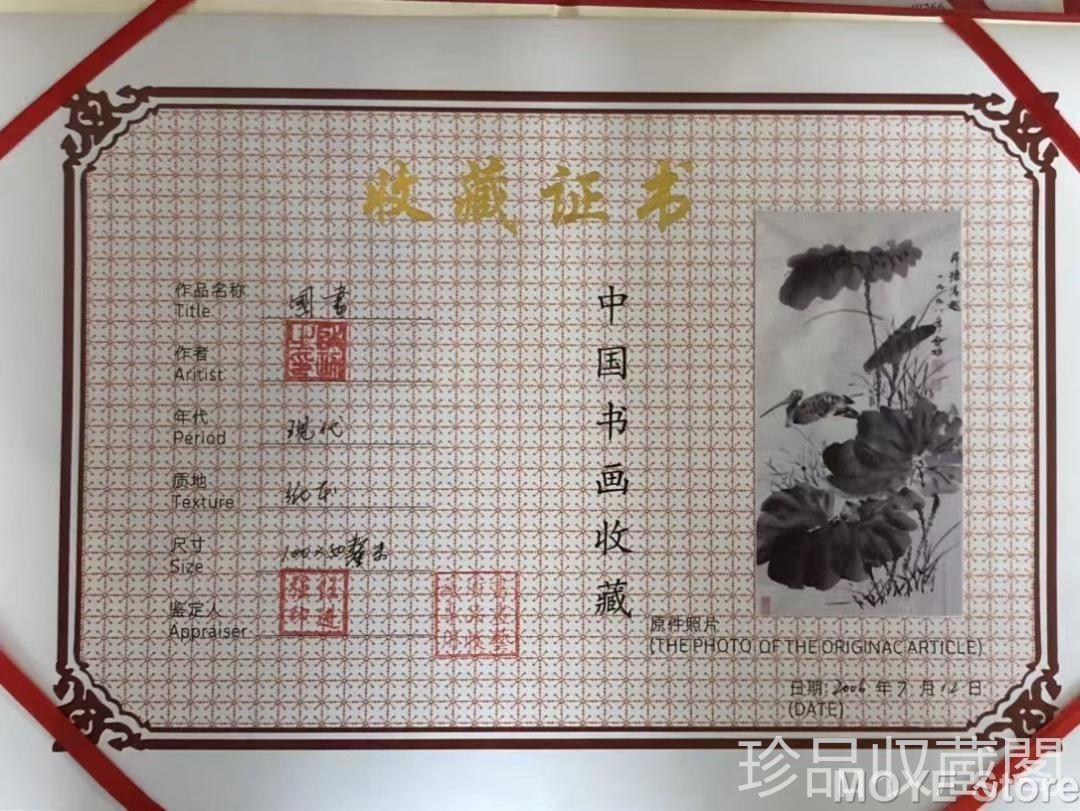 收藏证书
作品名称
Title
国畫
作者
Aritist
年代
Period
現代
质地
Texture
紙本
尺寸
Size
100×50釐米
鉴定人
Appraiser
中国书画收藏
原件照片
(THE PHOTO OF THE ORIGINAC ARTICLE)
日期: 2006 年 7 月 12 日
(DATE)
珍品収蔵閣
MOYE Store